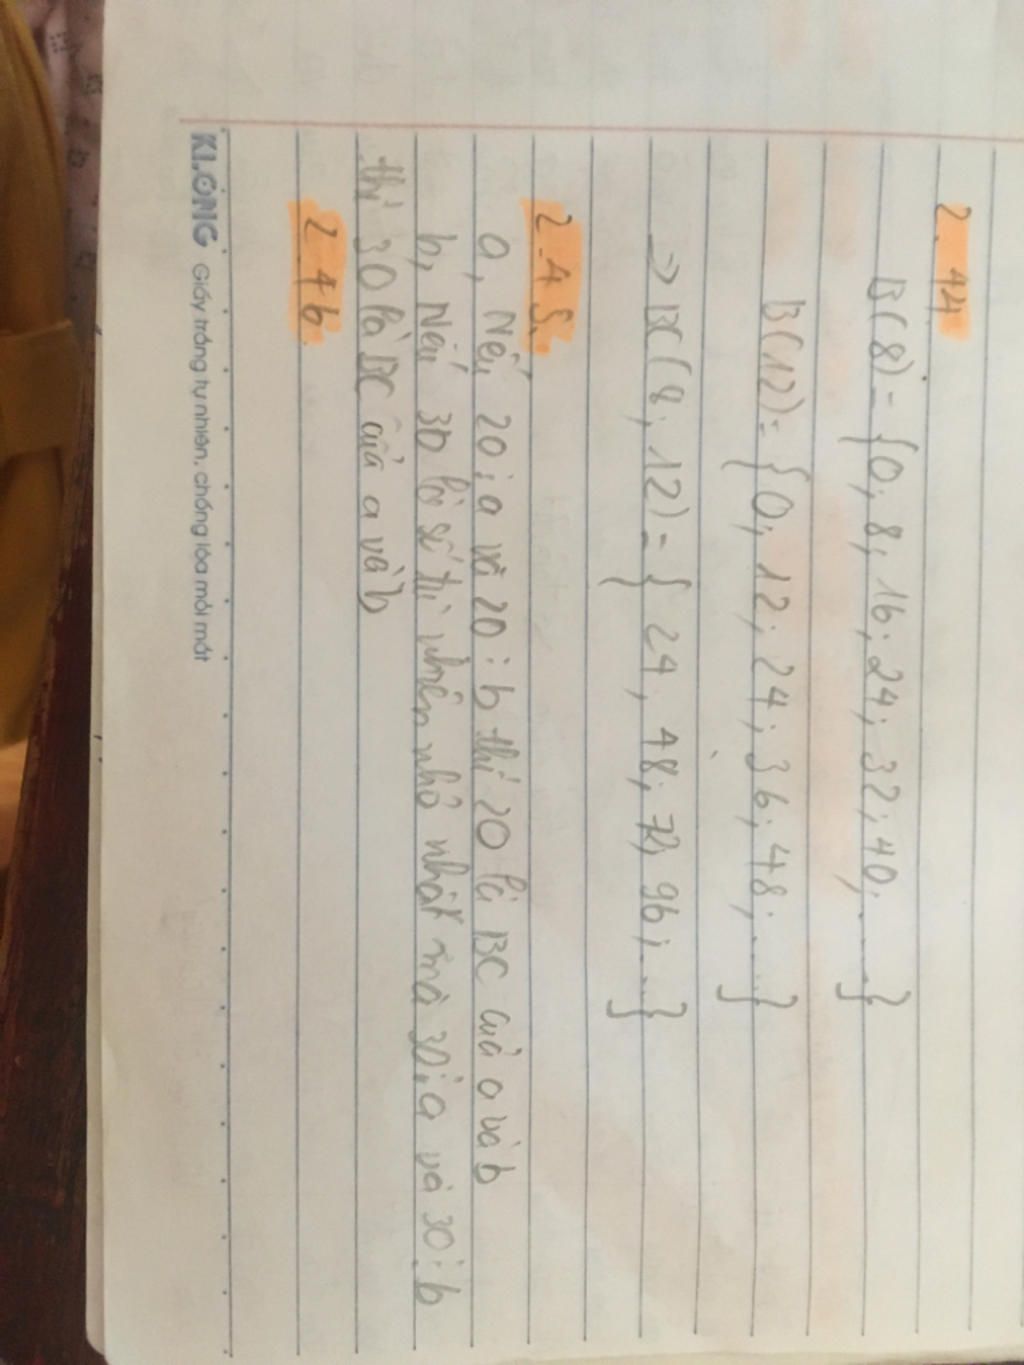 2.44
B(8)= {0; 8; 16; 24; 32; 40; ....}
B(12)= {0; 12; 24; 36; 48; ....}
→ BC(8; 12)= { 24, 48; 72; 96; ...}
2.45.
a, Nếu 20⋮a và 20⋮b thì 20 là BC của a và b
b, Nếu 30 là số tự nhiên nhỏ nhất mà 30⋮a và 30⋮b
thì 30 là BC của a và b
2.46.
KLONG Giấy trắng tự nhiên, chống lóa mỏi mắt